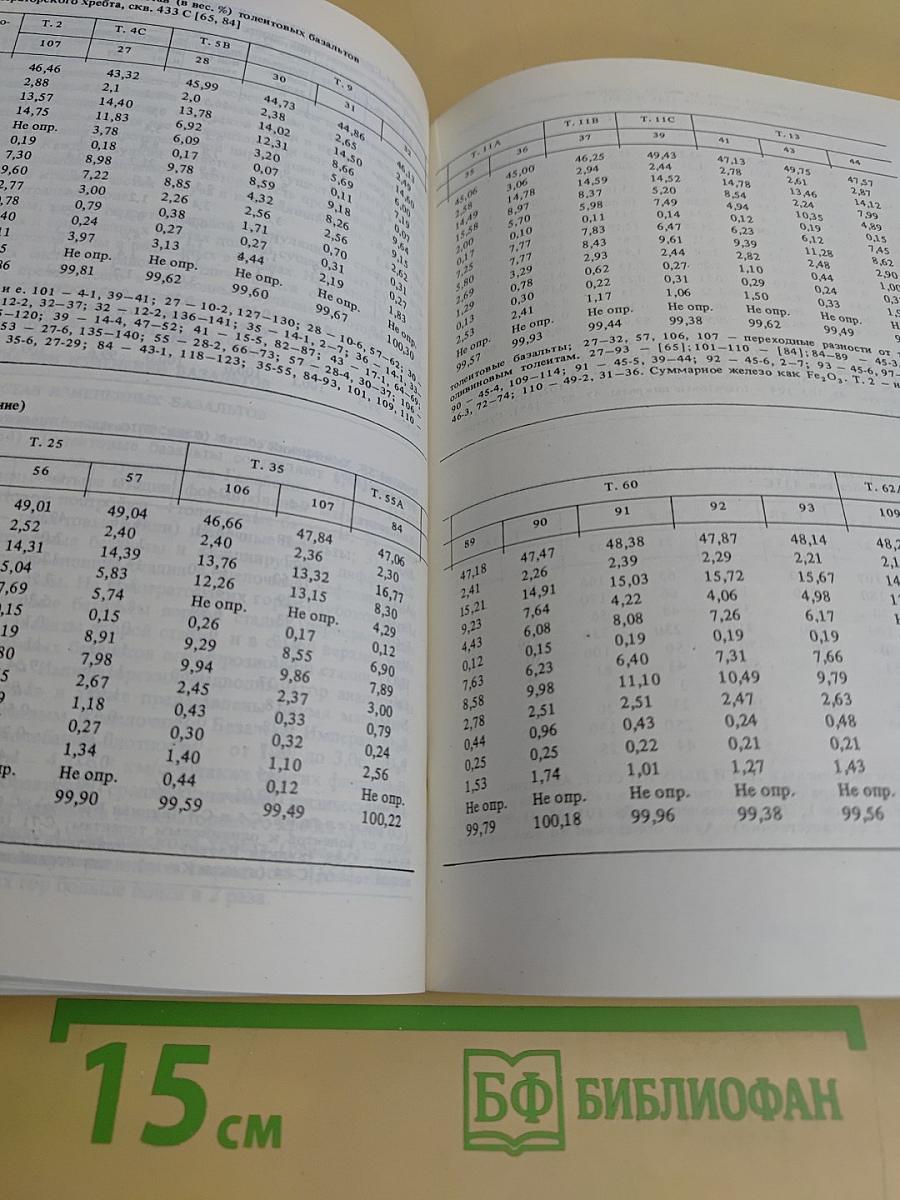 (в вес. %) толеитовых базальтов
хребта, скв. 433 С [65, 84]
Т. 2 Т. 4С Т. 5В Т. 9
107 27 28 30 31 32
46,46 43,32 45,99 44,73 44,86
2,88 2,1 2,0 2,38 2,65
13,57 14,40 13,78 14,02 14,50
14,75 11,83 6,92 12,31 8,66
Не опр. 3,78 6,09 3,20 5,69
0,19 0,18 0,17 0,07 0,11
7,30 8,98 9,78 8,59 9,18
9,60 7,22 8,85 4,32 8,26
2,77 3,00 2,26 2,56 2,56
0,79 0,38 1,71 0,70
0,24 0,27 0,27 0,31
3,97 3,13 4,44 2,19
Не опр. Не опр. Не опр. Не опр.
99,81 99,62 99,60 99,67 100,30
101 — 4-1, 39—41; 27 — 10-2, 127—130; 28 — 10-6, 57—62; 30 —
12-2, 32—37; 32 — 12-2, 136—141; 35 — 14-1, 2—7; 36 — 14-1, 33—
39 — 14-4, 47—52; 41 — 15-5, 82—87; 43 — 17-1, 64—69;
53 — 27-6, 135—140; 55 — 28-2, 66—73; 57 — 28-4, 30—37; 106 —
35-6, 27-29; 84 — 43-1, 118—123; 35-55, 84-93, 101, 109, 110 —
Т. 11А Т. 11В Т. 11С Т. 13
35 36 37 39 41 43 44
45,06 45,00 46,25 49,43 47,13 49,75 47,57
2,58 3,06 2,94 2,44 2,78 2,61 2,87
14,49 14,78 14,59 14,52 14,78 13,46 14,12
15,58 8,97 8,37 5,20 8,54 2,24 7,99
2,00 5,70 5,98 7,49 4,94 10,35 4,89
0,17 0,10 0,11 0,14 0,12 0,19 0,15
7,25 7,77 7,83 6,47 6,23 6,12 7,45
5,80 7,77 8,43 9,61 9,39 11,28 8,62
2,69 3,29 2,93 2,44 2,82 2,48 2,90
1,29 0,78 0,62 0,27 1,10 0,44
0,13 0,30 0,22 0,31 0,29 0,24
2,53 2,41 1,17 1,06 1,50 0,33
Не опр. Не опр. Не опр. Не опр. Не опр. Не опр.
99,57 99,93 99,44 99,38 99,62 99,49
толеитовые базальты; 27—32, 57, 106, 107 — переходные разности от
оливиновым толеитам. 27—93 — [65]; 101—110 — [84]; 84—89 — 45-3,
90 — 45-4, 109—114; 91 — 45-5, 39—44; 92 — 45-6, 2—7; 93 — 45-6, 97—
46-3, 72—74; 110 — 49-2, 31—36. Суммарное железо как Fe₂O₃. Т. 2 —
Т. 25 Т. 35 Т. 55А
56 57 106 107 84
49,01 49,04 46,66 47,84 47,06
2,52 2,40 2,40 2,36 2,30
14,31 14,39 13,76 13,32 16,77
5,04 5,83 12,26 13,15 8,30
7,69 5,74 Не опр. Не опр. 4,29
0,15 0,15 0,26 0,17 0,12
8,91 9,29 8,55 6,90
7,98 9,94 9,86 7,89
2,67 2,45 2,37 3,00
1,18 0,43 0,33 0,79
0,27 0,30 0,32 0,24
1,34 1,40 1,10 2,56
Не опр. 0,44 0,12 Не опр.
99,90 99,59 99,49 100,22
Т. 60
89 90 91 92 93 109
47,18 47,47 48,38 47,87 48,14
2,41 2,26 2,39 2,29 2,21
15,21 14,91 15,03 15,72 15,67
9,23 7,64 4,22 4,06 4,98
4,43 6,08 8,08 7,26 6,17
0,12 0,15 0,19 0,19 0,19
7,63 6,23 6,40 7,31 7,66
8,58 9,98 11,10 10,49 9,79
2,78 2,51 2,51 2,47 2,63
0,44 0,96 0,43 0,24 0,48
0,25 0,25 0,22 0,21 0,21
1,53 1,74 1,01 1,27 1,43
Не опр. Не опр. Не опр. Не опр. Не опр.
99,79 100,18 99,96 99,38 99,56
15 см
БФ БИБЛИОФАН